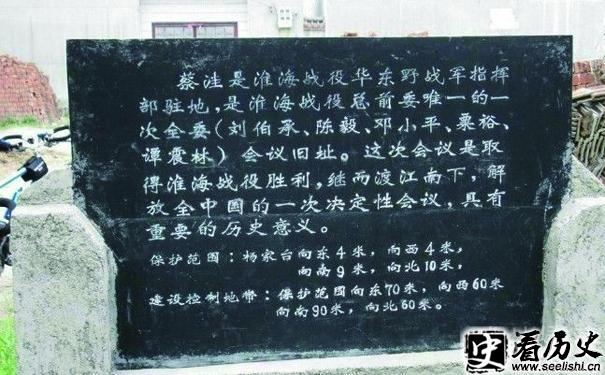 蔡洼是淮海战役华东野战军指挥
部驻地,是淮海战役总前委唯一的一
次全委(刘伯承、陈毅、邓小平、粟裕、
谭震林)会议旧址。这次会议是取
得淮海战役胜利,继而渡江南下,解
放全中国的一次决定性会议,具有
重要的历史意义。
保护范围:杨家台向东4米,向西4米,
向南9米,向北10米,
建设控制地带:保护范围向东70米,向西60米
向南90米,向北60米。
史 看历史
www.seelishi.cn